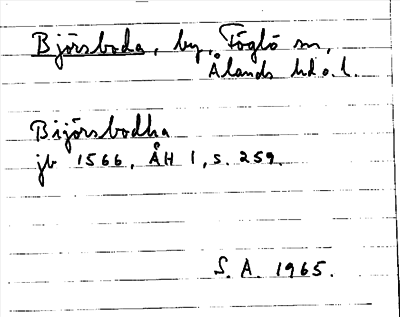 Björsboda, by, Föglö sn,
Ålands hd o. l.
Bijörsbodha
jb 1566, ÅH 1, s. 259.
S. A. 1965.